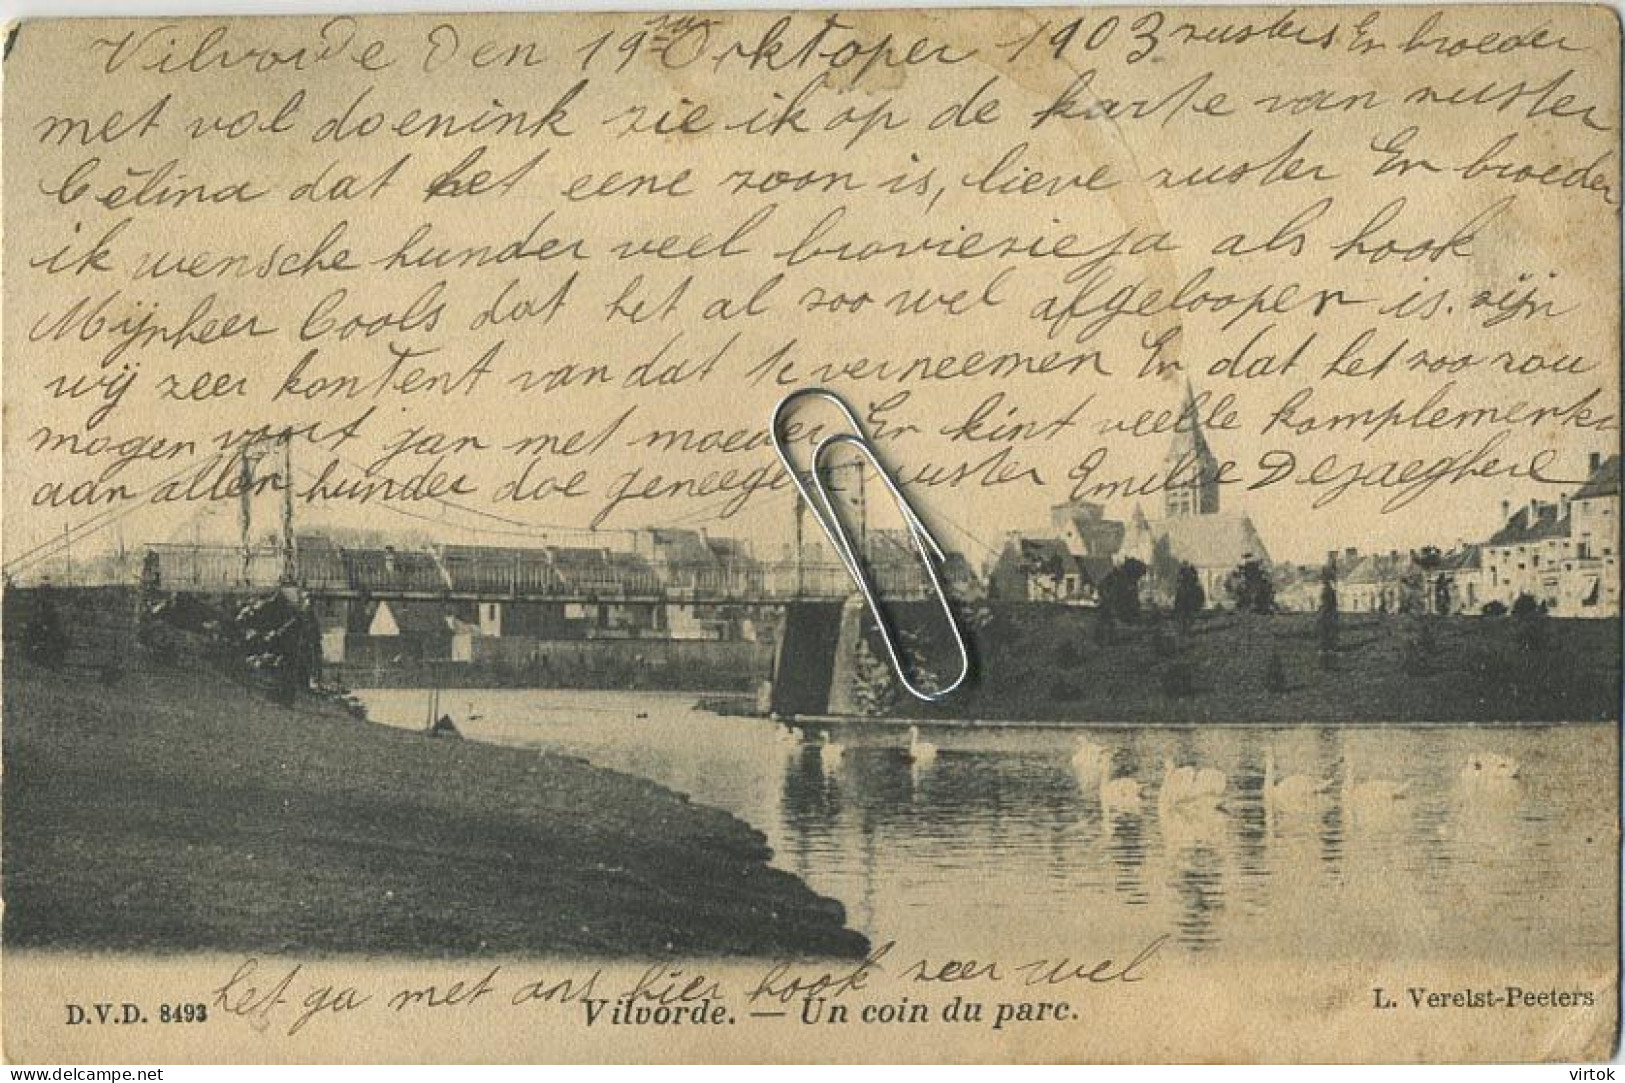 Vilvorde den 19 Orktoper 1903 zusters En broeder
met vol doenink zie ik op de karte van zuster
Célina dat het eene zoon is, lieve zuster En broeder
ik wensche hunder veel broviezieja als hook
Mijnheer Cools dat het al zoo wel afgeloopen is. zijn
wij zeer kontent van dat te verneemen En dat het zoo zou
mogen voort jan met moeder En kint veelle komplementen
aan allen hunder doe geneegen zuster Emelie Dezaeghere
het ga met ons hier hook zeer wel
D.V.D. 8493 Vilvorde. — Un coin du parc. L. Verelst-Peeters
delcampe.net virtok